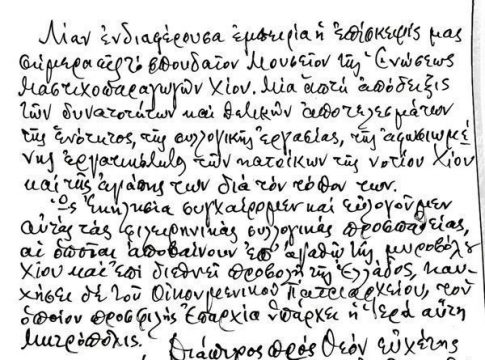 Λίαν ἐνδιαφέρουσα ἐμπειρία ἡ ἐπίσκεψίς μας
σήμερα εἰς τό σπουδαῖον Μουσεῖον τῆς Ἑνώσεως
Μαστιχοπαραγωγῶν Χίου. Μία ἁπτή ἀπόδειξις
τῶν δυνατοτήτων καί θετικῶν ἀποτελεσμάτων
τῆς ἑνότητος, τῆς συλλογικῆς ἐργασίας, τῆς ἀφωσιωμέ-
νης ἐργατικότητος τῶν κατοίκων τῆς νοτίου Χίου
καί τῆς ἀγάπης των διά τόν τόπον των.
Ὡς Ἐκκλησία συγχαίρομεν καί εὐλογοῦμεν
αὐτάς τάς εἰλικρινικάς συλλογικάς προσπαθείας,
αἱ ὁποῖαι ἀποβαίνουν ἐπ' ἀγαθῷ τῆς μυροβόλου
Χίου καί ἐπί διεθνεῖ προβολῇ τῆς Ἑλλάδος, καυ-
χήσει δέ τοῦ Οἰκουμενικοῦ Πατριαρχείου, τοῦ
ὁποίου προσφιλής Ἐπαρχία ὑπάρχει ἡ Ἱερά αὕτη
Μητρόπολις.
Διάπυρος πρός Θεόν εὐχέτης